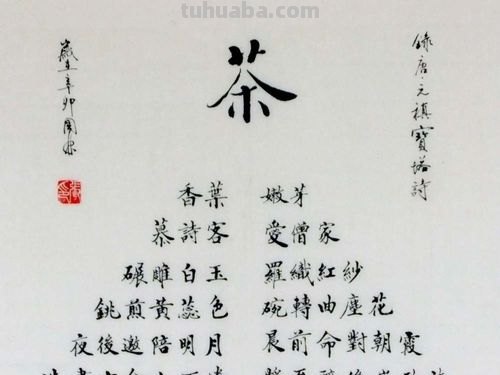 tuhuaba.com
錄唐元稹寶塔詩
茶
香葉 嫩芽
慕詩客 愛僧家
碾雕白玉 羅織紅紗
銚煎黃蕊色 碗轉曲塵花
夜後邀陪明月 晨前命對朝霞
歲在辛卯